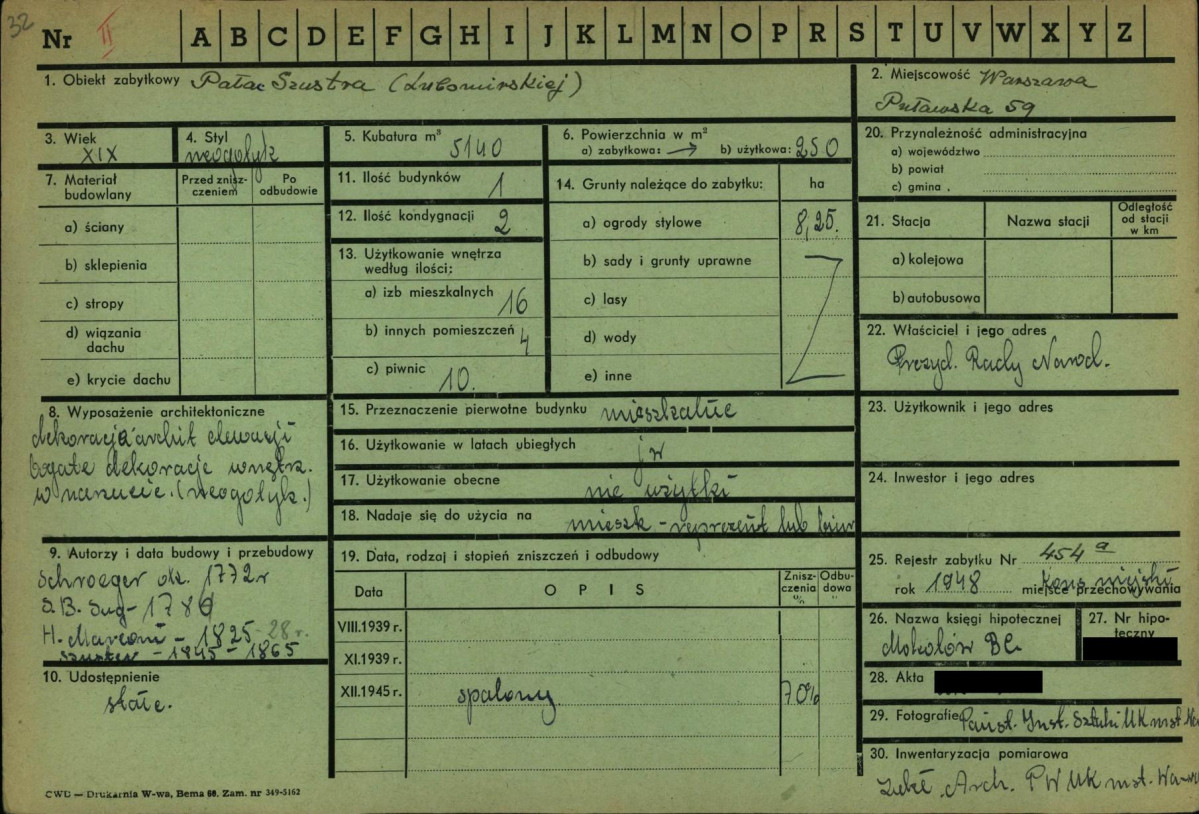 32
Nr II A B C D E F G H I J K L M N O P R S T U V W X Y Z
1. Obiekt zabytkowy Pałac Szustra (Lubomirskiej)
2. Miejscowość Warszawa
Puławska 59
3. Wiek XIX
4. Styl neogotyk
5. Kubatura m³ 5140
6. Powierzchnia w m²
a) zabytkowa: → b) użytkowa: 250
7. Materiał budowlany
Przed zniszczeniem
Po odbudowie
a) ściany
b) sklepienia
c) stropy
d) wiązania dachu
e) krycie dachu
8. Wyposażenie architektoniczne
dekoracja archit elewacji
bogate dekoracje wnętrz.
w narzucie. (neogotyk.)
9. Autorzy i data budowy i przebudowy
Schroeger ok. 1772 r
S. B. Zug - 1780
H. Marconi - 1825 - 28 r.
Szuster - 1845 - 1865
10. Udostępnienie
stałe.
11. Ilość budynków 1
12. Ilość kondygnacji 2
13. Użytkowanie wnętrza według ilości:
a) izb mieszkalnych 16
b) innych pomieszczeń 4
c) piwnic 10.
14. Grunty należące do zabytku: ha
a) ogrody stylowe 8,25.
b) sady i grunty uprawne
c) lasy
d) wody
e) inne
15. Przeznaczenie pierwotne budynku mieszkalne
16. Użytkowanie w latach ubiegłych jw
17. Użytkowanie obecne nie użytki
18. Nadaje się do użycia na mieszk - reprezent lub
19. Data, rodzaj i stopień zniszczeń i odbudowy
Data OPIS Zniszczenia % Odbudowa %
VIII.1939 r.
XI.1939 r.
XII.1945 r. spalony 70%
20. Przynależność administracyjna
a) województwo
b) powiat
c) gmina
21. Stacja Nazwa stacji Odległość od stacji w km
a) kolejowa
b) autobusowa
22. Właściciel i jego adres
Prezyd. Rady Narod.
23. Użytkownik i jego adres
24. Inwestor i jego adres
25. Rejestr zabytku Nr 454 a
rok 1948 miejsce przechowywania Kons miejski
26. Nazwa księgi hipotecznej
Mokotów BC
27. Nr hipoteczny
28. Akta
29. Fotografie Państ. Inst. Sztuki UK mst
30. Inwentaryzacja pomiarowa
Zakł. Arch. PW UK mst.
CWD — Drukarnia W-wa, Bema 60. Zam. nr 349-5162